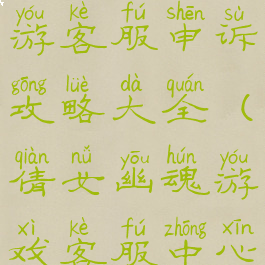 yóu kè fú shēn sù
游客服申诉
gōng lüè dà quán
攻略大全（
qiàn nǚ yōu hún yóu
倩女幽魂游
xì kè fú zhōng xīn
戏客服中心